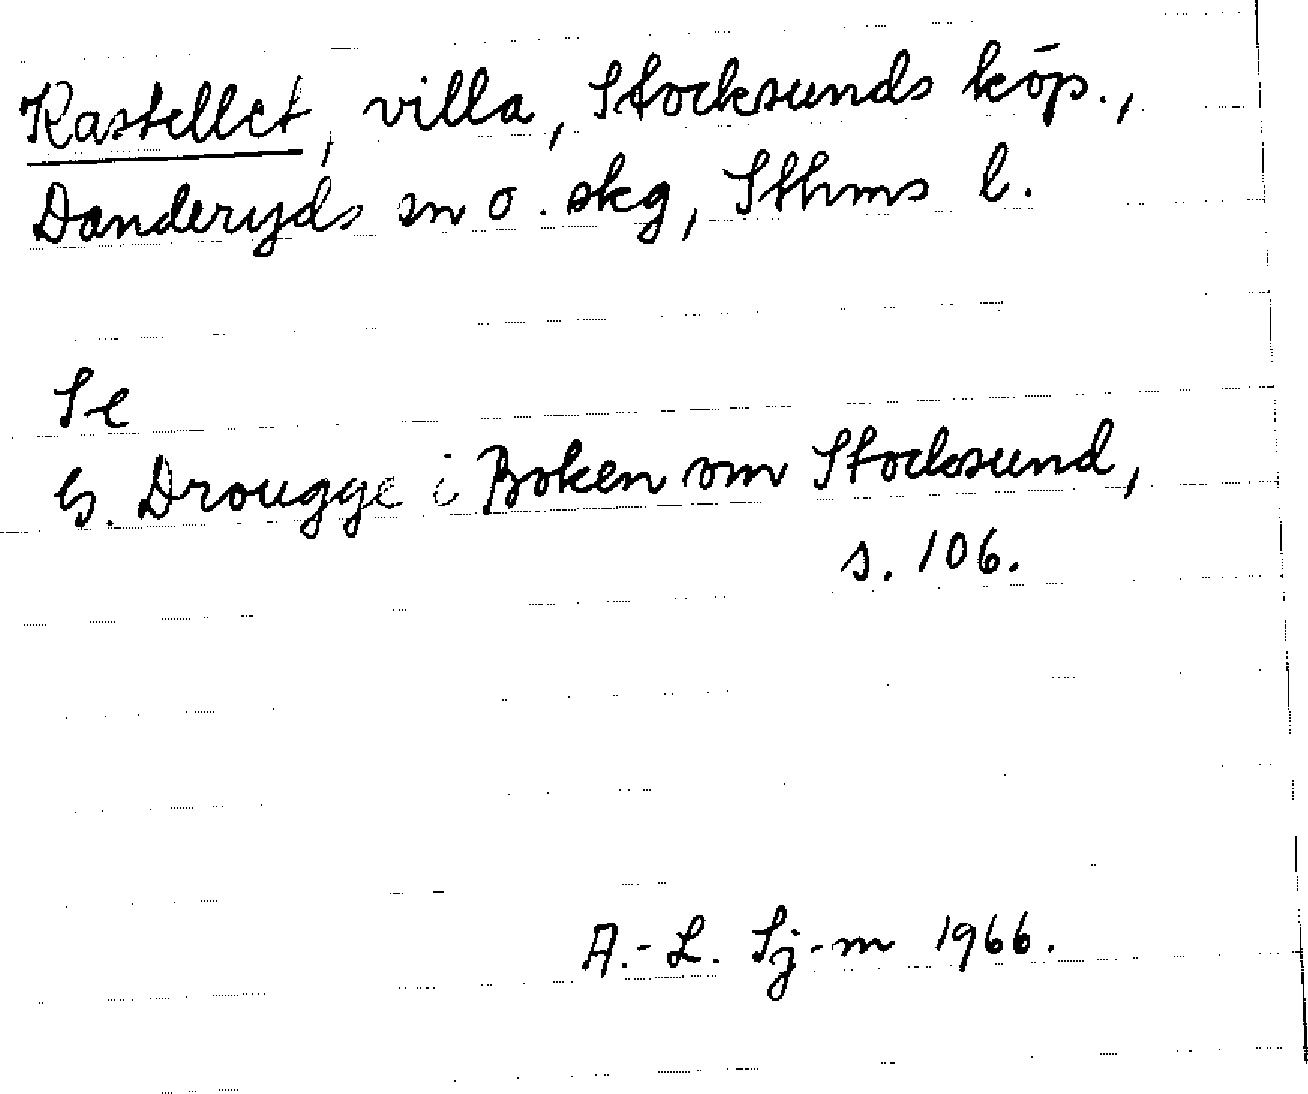 Kastellet, villa, Stocksunds köp.,
Danderyds sn o. skg, Sthms l.
Se
G. Drougge i Boken om Stocksund,
s. 106.
A.-L. Sj-m 1966.